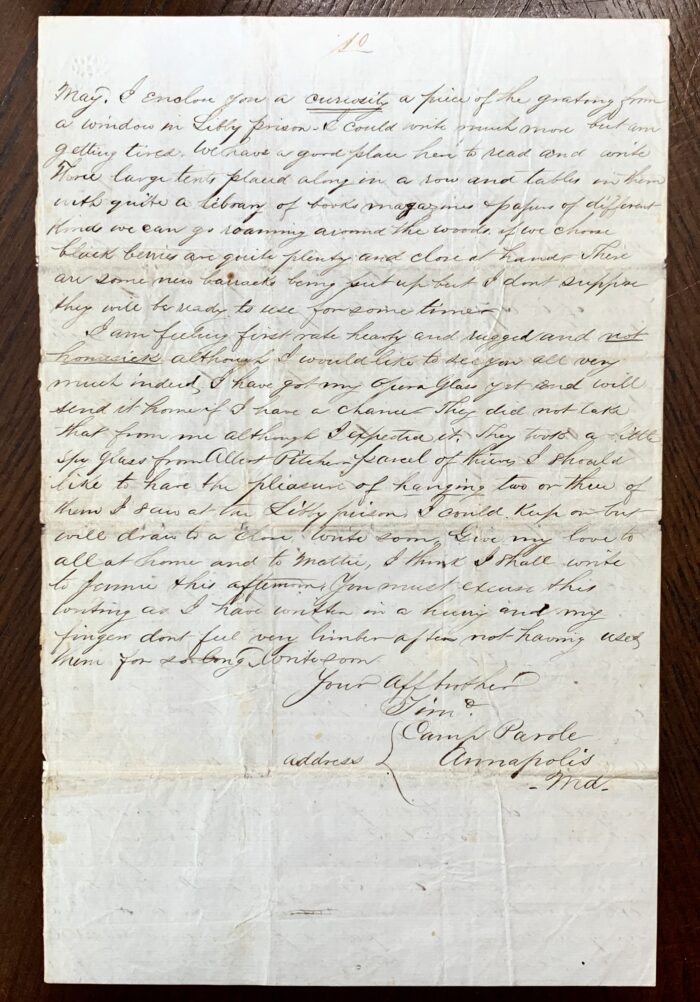 10
May. I enclose you a curiosity a piece of the grating from
a window in Libby prison - I could write much more but am
getting tired. We have a good place here to read and write
Three large tents placed along in a row and tables in them
with quite a library of books magazines & papers of different
kinds we can go roaming around the woods if we choose
black berries are quite plenty and close at hand. There
are some new barracks being put up but I dont suppose
they will be ready to use for some time -
I am feeling first rate hearty and rugged and not
homesick although I would like to see you all very
much indeed, I have got my Opera Glass yet and will
send it home if I have a chance - They did not take
that from me although I expected it. They took a little
spy glass from Albert Pitcher - parcel of thieves I should
like to have the pleasure of hanging two or three of
them I saw at the Libby prison, I could keep on but
will draw to a close write soon, Give my love to
all at home and to Mattie, I think I shall write
to Jennie this afternoon, You must excuse this
writing as I have written in a hurry and my
fingers dont feel very limber after not having used
them for so long, Write soon
Your Aff brother
Tim.
Camp Parole
address { Annapolis
- Md -